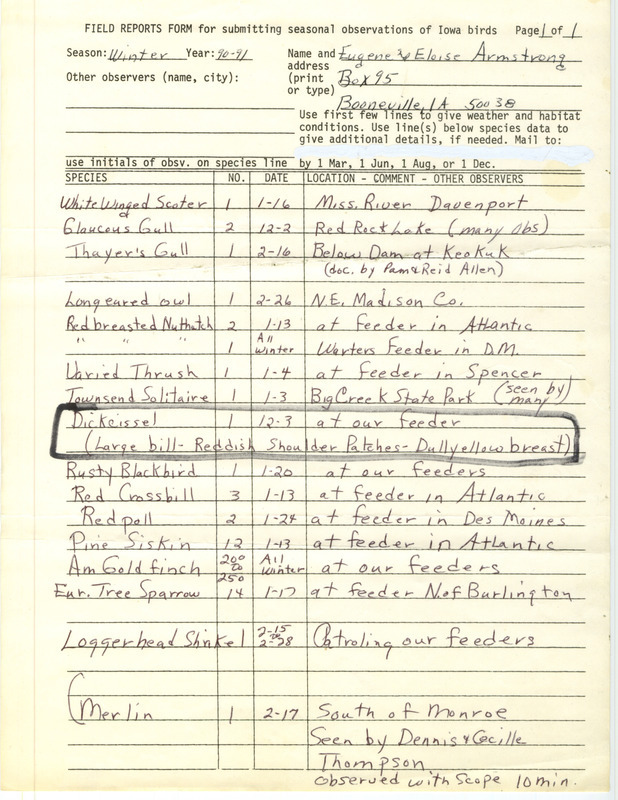 FIELD REPORTS FORM for submitting seasonal observations of Iowa birds Page 1 of 1
Season: Winter Year: 90-91 Name and Eugene & Eloise Armstrong
address
Other observers (name, city): (print Box 95
or type)
Booneville, IA 50038
Use first few lines to give weather and habitat
conditions. Use line(s) below species data to
give additional details, if needed. Mail to:
use initials of obsv. on species line by 1 Mar, 1 Jun, 1 Aug, or 1 Dec.
SPECIES NO. DATE LOCATION - COMMENT - OTHER OBSERVERS
White Winged Scoter 1 1-16 Miss. River Davenport
Glaucous Gull 2 12-2 Red Rock Lake (many obs)
Thayer's Gull 1 2-16 Below Dam at Keokuk
(doc. by Pam & Reid Allen)
Longeared owl 1 2-26 N.E. Madison Co.
Red breasted Nuthatch 2 1-13 at feeder in Atlantic
" " " 1 All Winter Warters Feeder in D.M.
Varied Thrush 1 1-4 at feeder in Spencer
Townsend Solitaire 1 1-3 Big Creek State Park (seen by many)
Dickcissel 1 12-3 at our feeder
(Large bill- Reddish Shoulder Patches- Dull yellow breast)
Rusty Blackbird 1 1-20 at our feeders
Red Crossbill 3 1-13 at feeder in Atlantic
Redpoll 2 1-24 at feeder in Des Moines
Pine Siskin 12 1-13 at feeder in Atlantic
Am Goldfinch 200 to 250 All Winter at our feeders
Eur. Tree Sparrow 14 1-17 at feeder N. of Burlington
Loggerhead Shrikel 2-15 to 2-28 Patroling our feeders
(Merlin 1 2-17 South of Monroe
Seen by Dennis & Cecille
Thompson
observed with Scope 10 min.